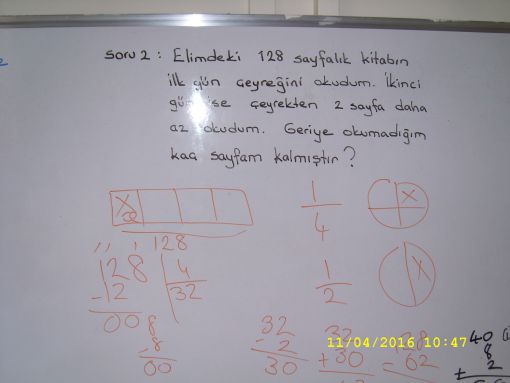 Soru 2 : Elimdeki 128 sayfalık kitabın
ilk gün çeyreğini okudum. İkinci
gün ise çeyrekten 2 sayfa daha
az okudum. Geriye okumadığım
kaç sayfam kalmıştır?
X
128
1
4
X
128 4
-12 32
008
-8
00
1
2
X
32
- 2
30
32
+30
62
40
8
2
+
11/04/2016 10:47